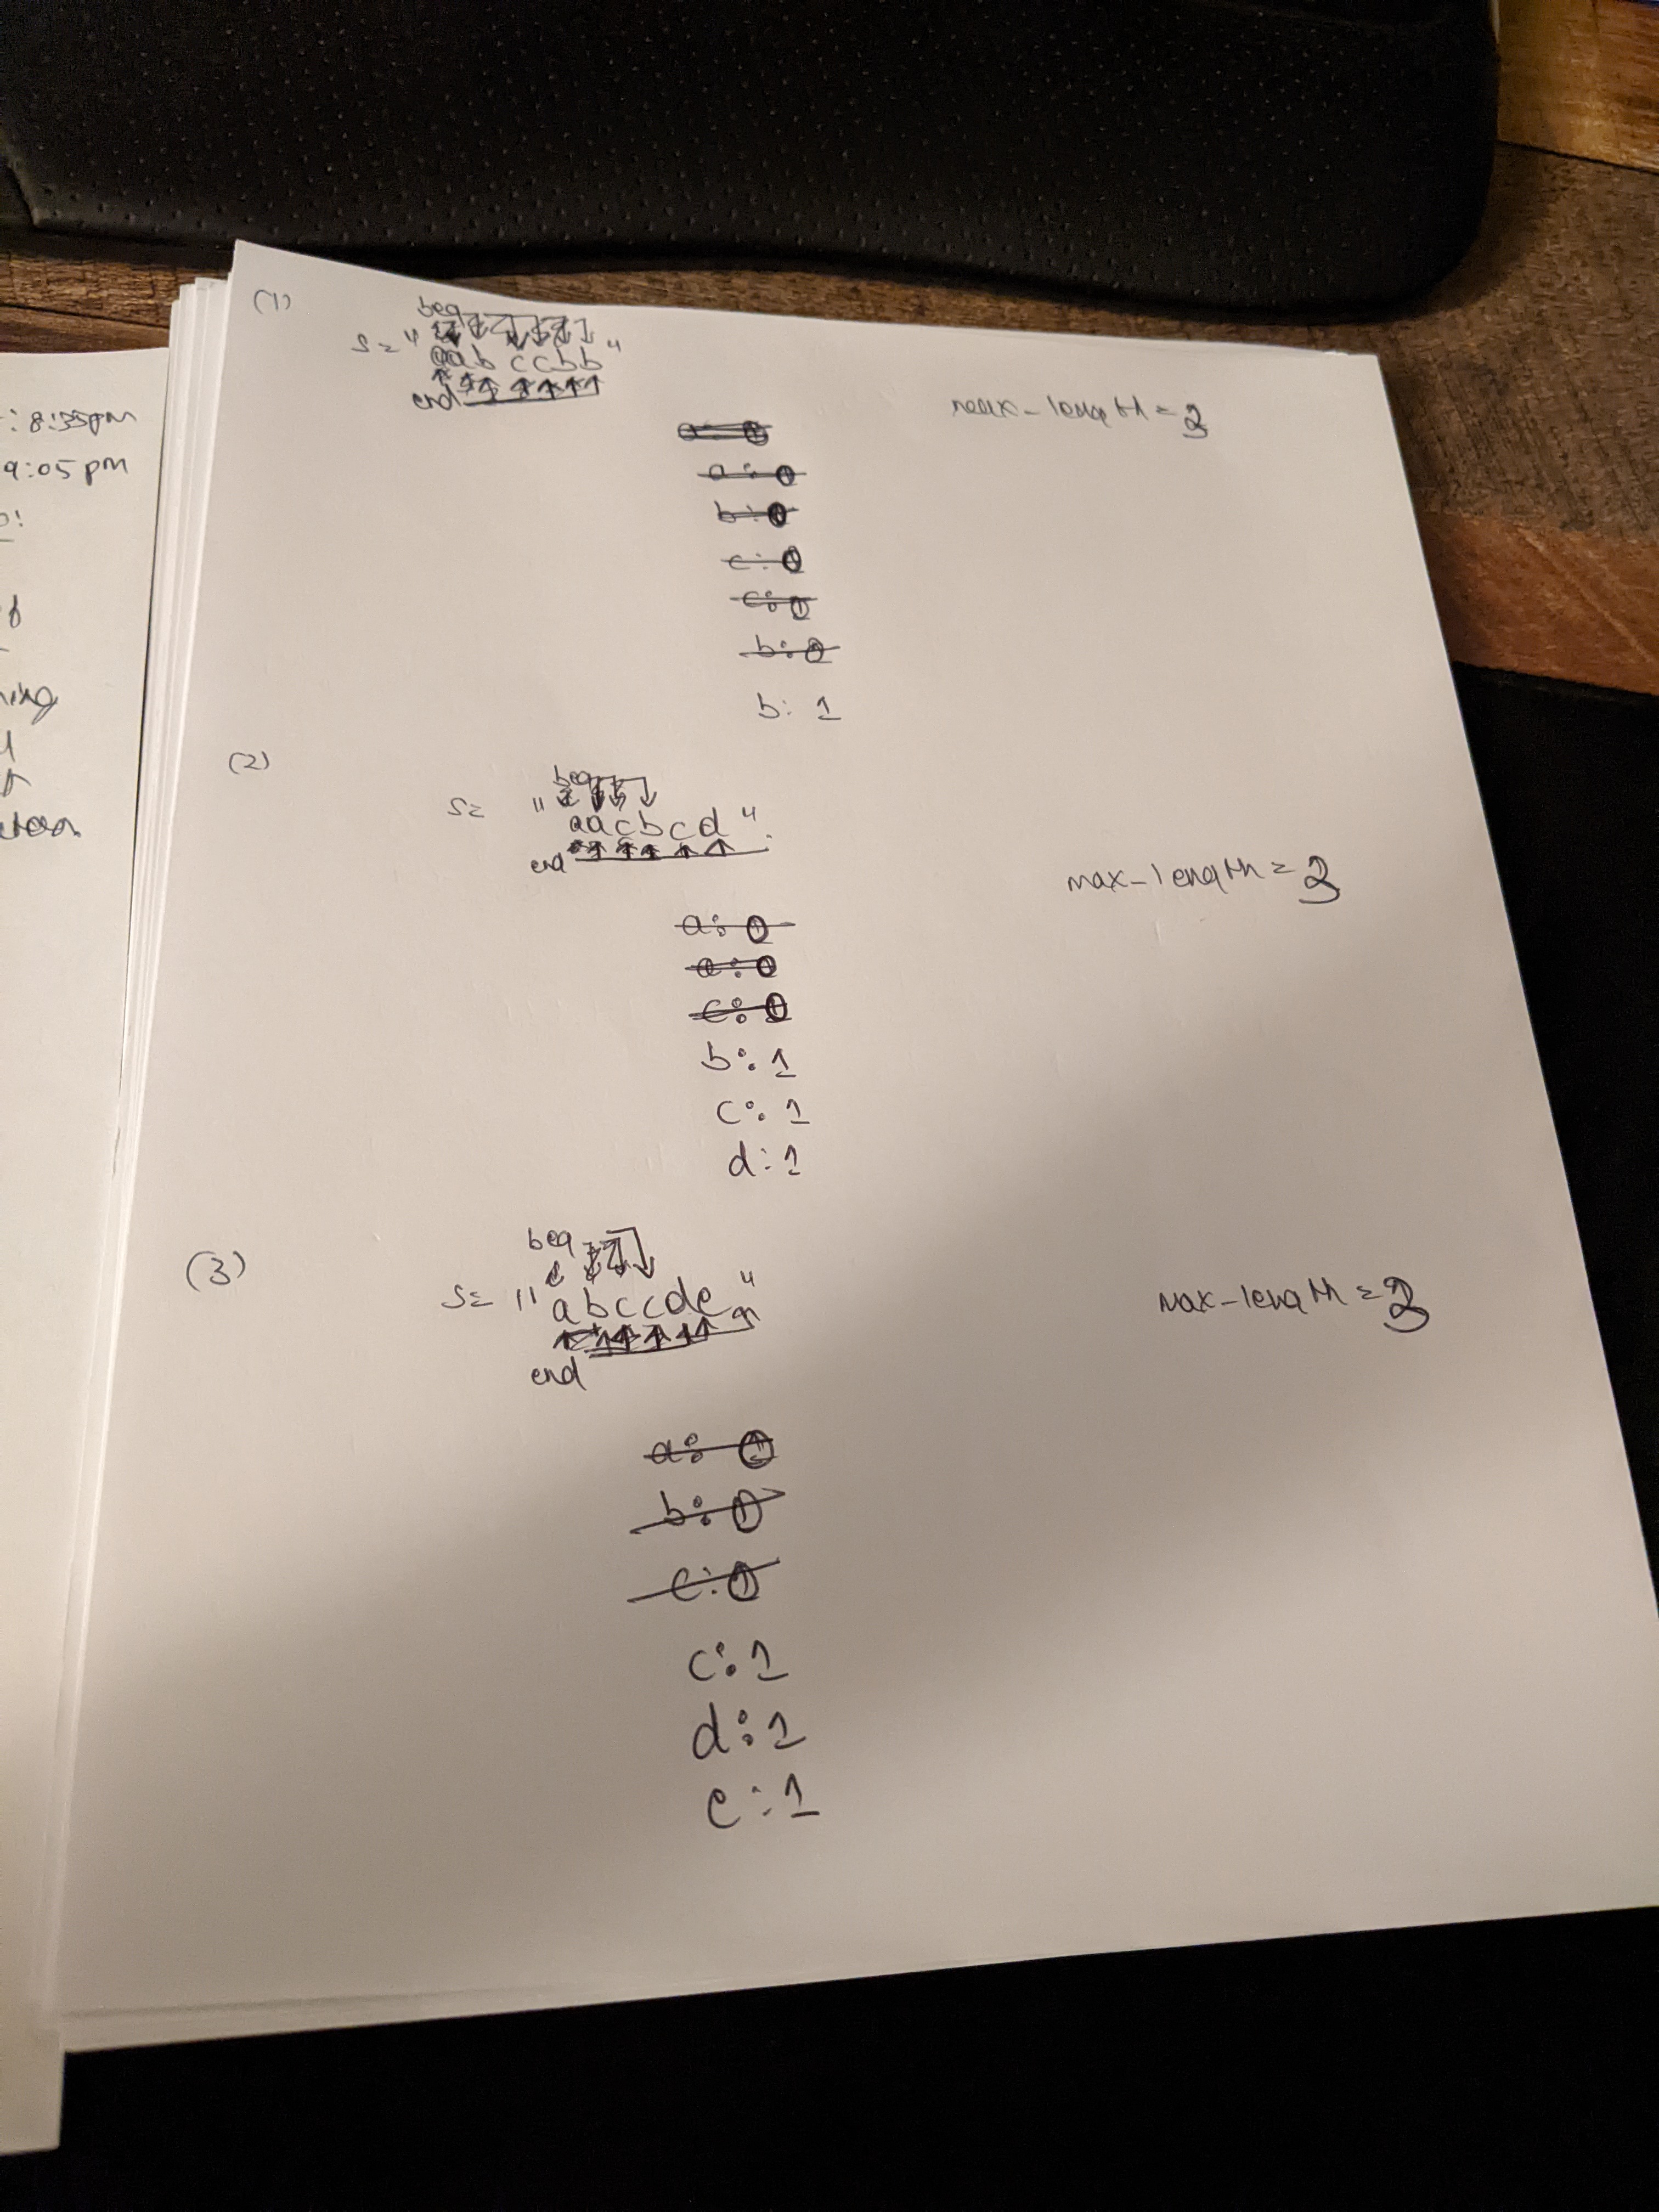 : 8:35pm
9:05 pm
(1)
beg
s= "aabccbb"
end
max-length = 3
a: 0
a: 0
b: 0
c: 0
c: 0
b: 0
b: 1
(2)
beg
s= "aacbcd".
end
max-length = 3
a: 0
a: 0
c: 0
b: 1
c: 1
d: 1
(3)
beg
s= "abccde"
end
max-length = 3
a: 0
b: 0
c: 0
c: 1
d: 1
e: 1